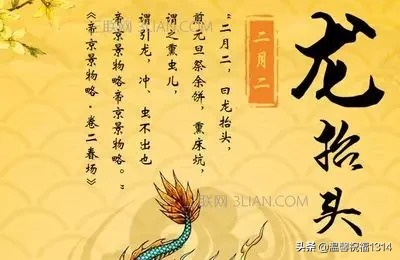 龙抬头
二月二
“二月二，曰龙抬头，
煎元旦祭余饼，熏床炕，
谓之熏虫儿，
谓引龙，冲、虫不出也
帝京景物略帝京景物略。”
《帝京景物略·卷二春场》
三联网 3LIAN.COM
三联网 3LIAN.COM
头条 @温馨祝福1314